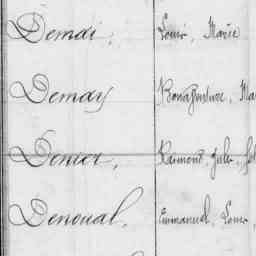 Demai, Louis, Marie
Demay Bonaventure, Ma
Denier, Raimond, Jules,
Denoual, Emmanuel, Louis,